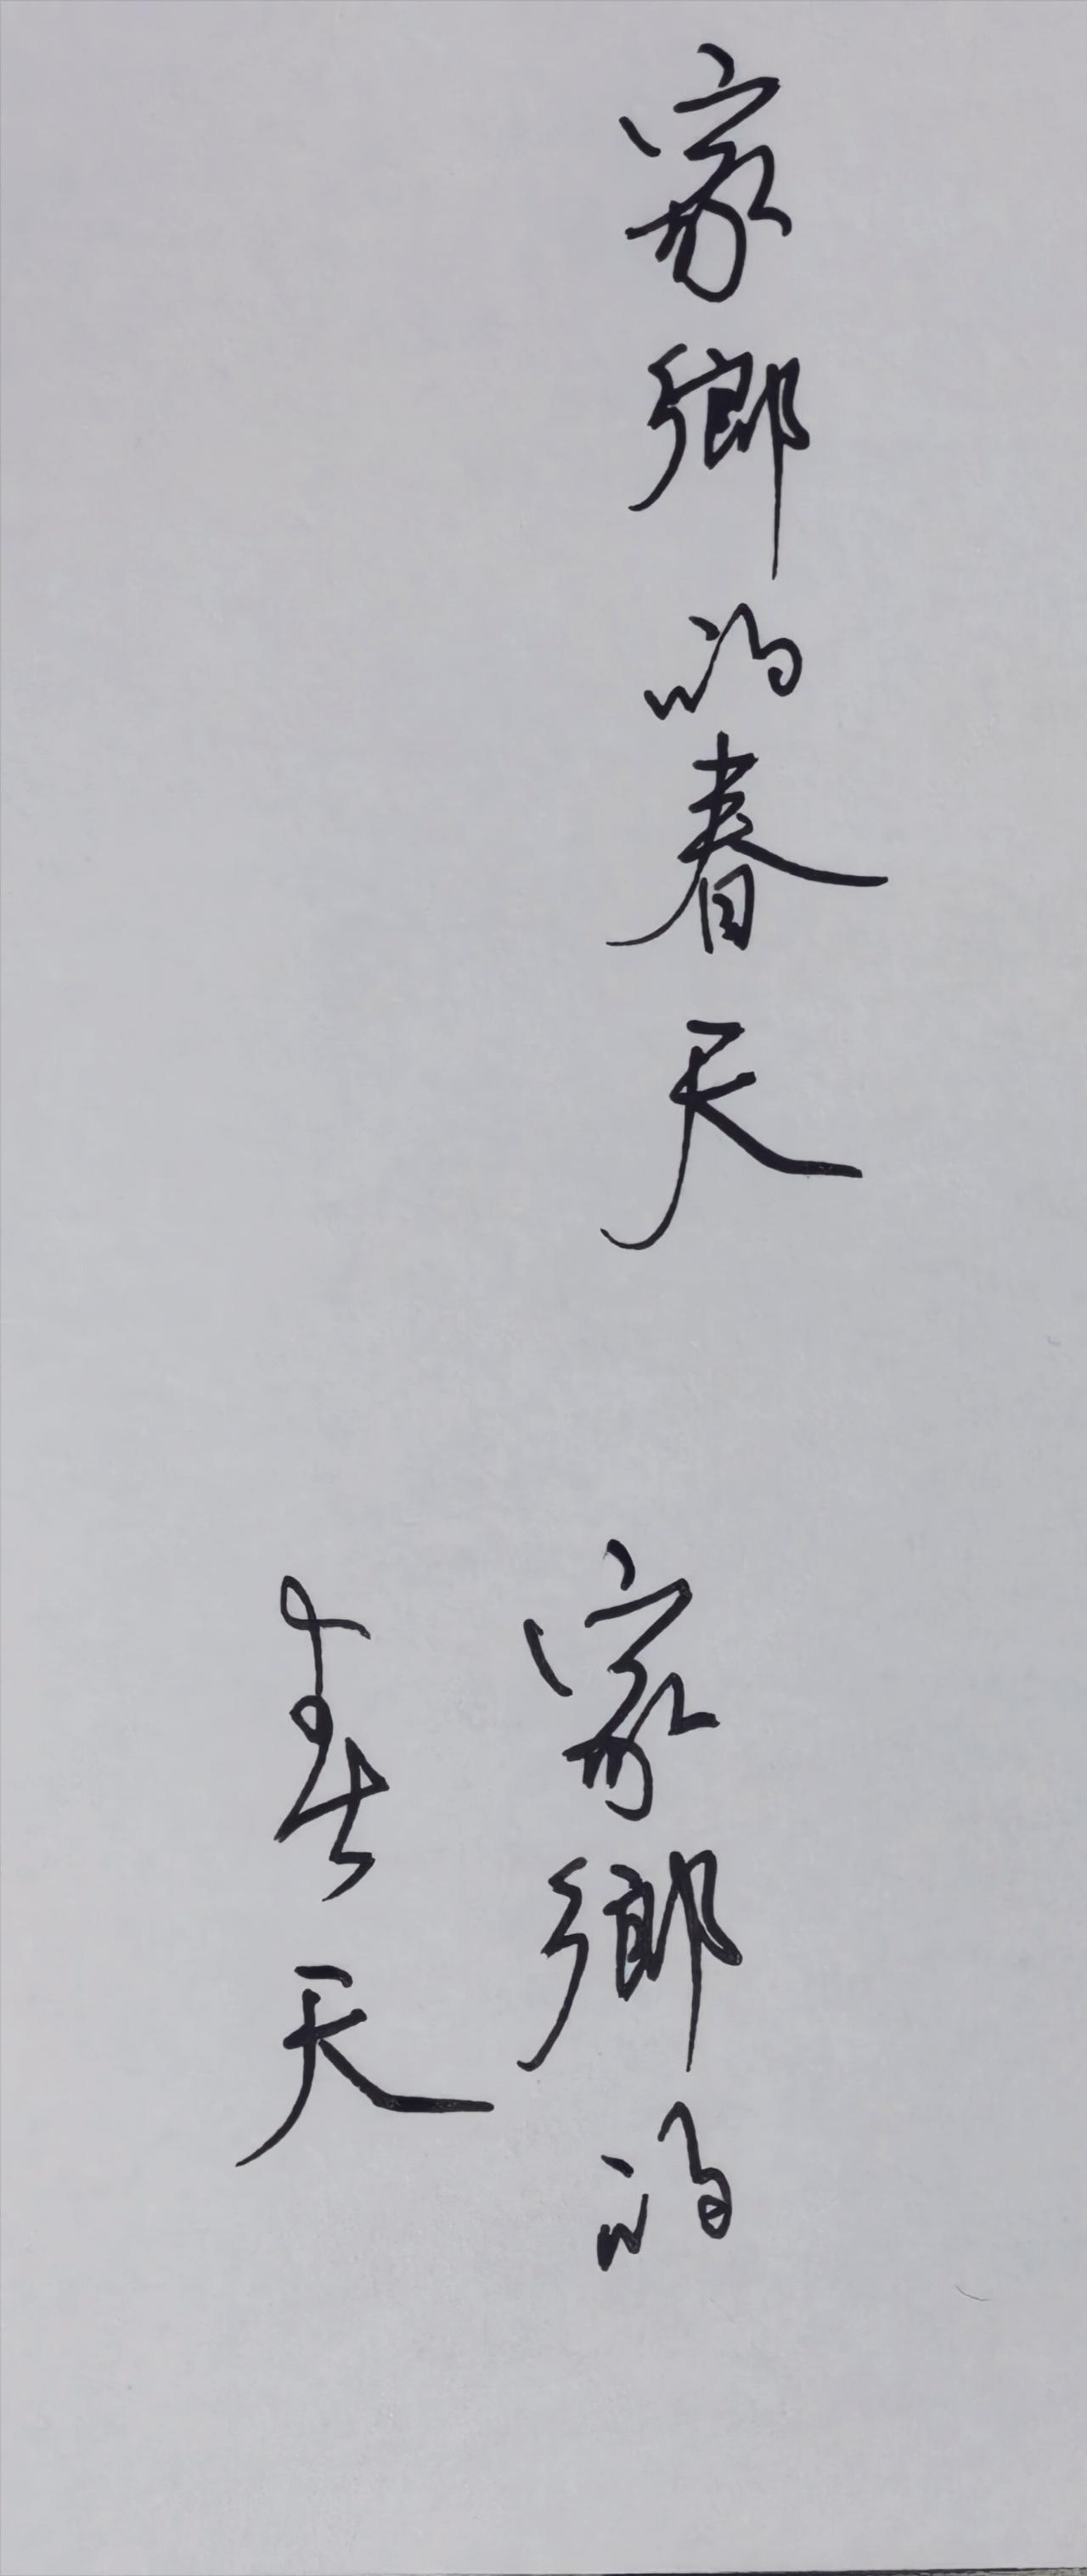 家鄉的春天
家鄉的
春天